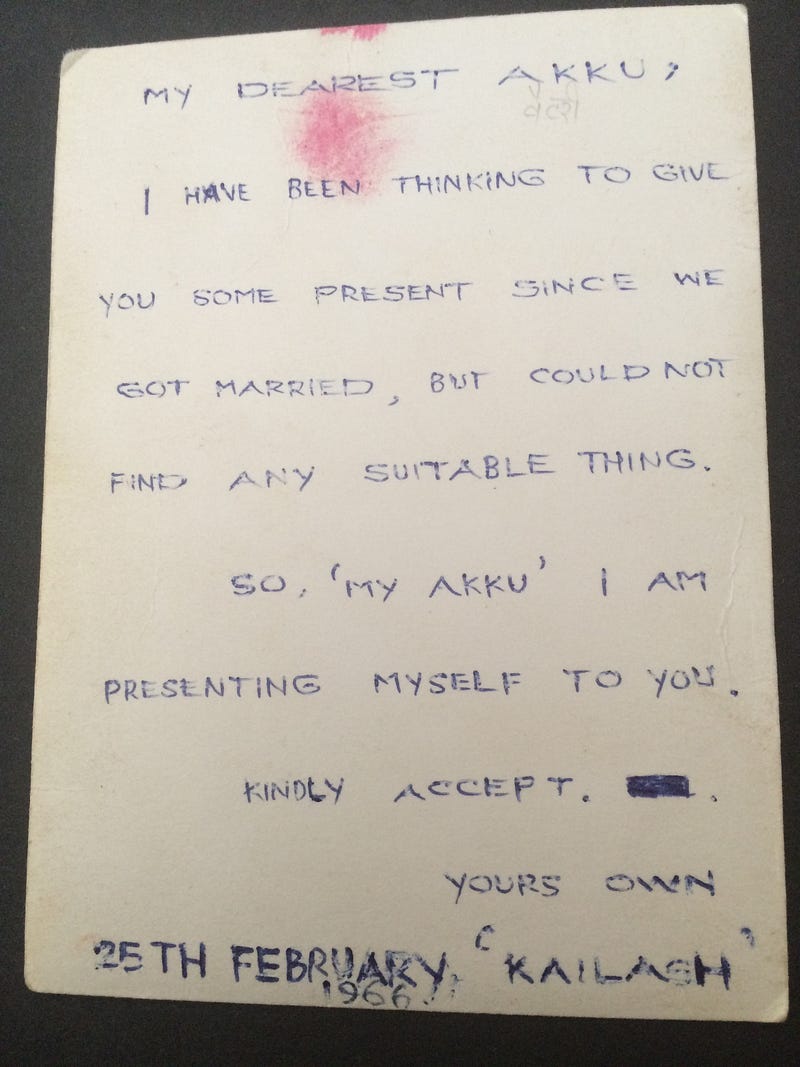 MY DEAREST AKKU;
I HAVE BEEN THINKING TO GIVE
YOU SOME PRESENT SINCE WE
GOT MARRIED, BUT COULD NOT
FIND ANY SUITABLE THING.
SO, 'MY AKKU' I AM
PRESENTING MYSELF TO YOU.
KINDLY ACCEPT. .
YOURS OWN
25TH FEBRUARY, 'KAILASH'
1966